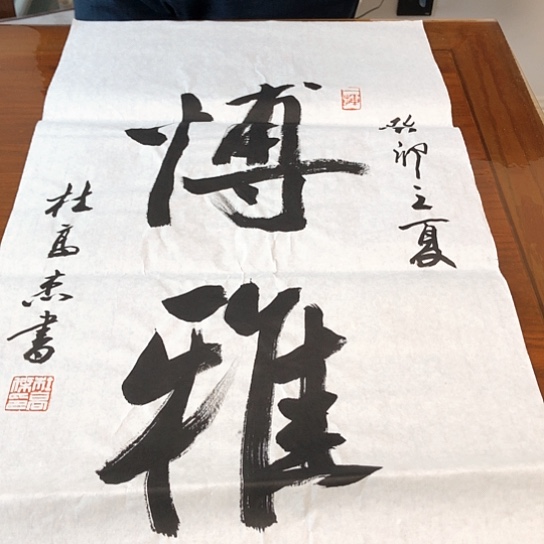 博雅
癸卯立夏
杜高杰書